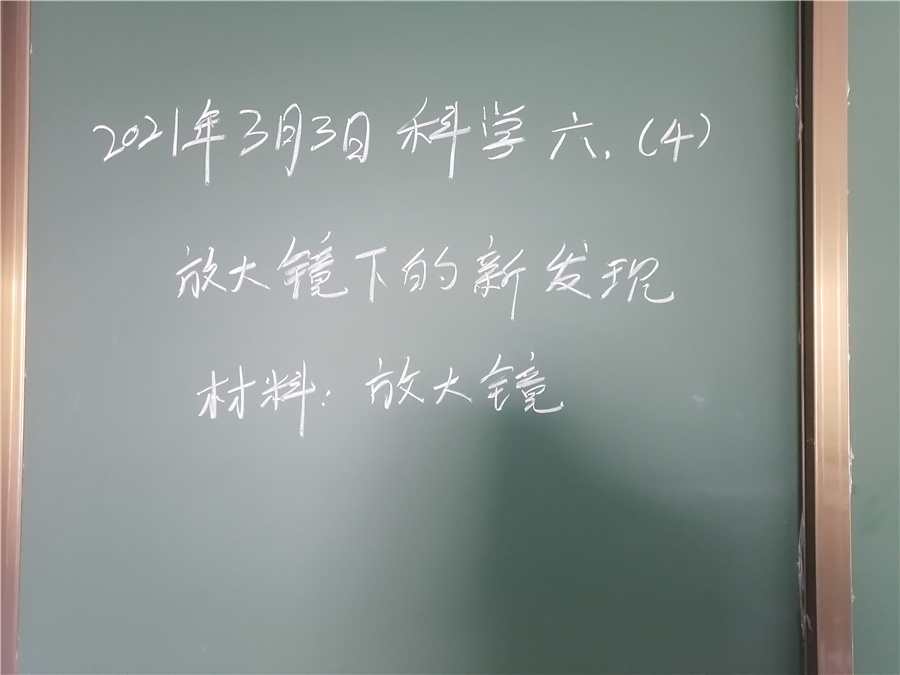 2021年3月3日 科学 六.(4)
放大镜下的新发现
材料:放大镜